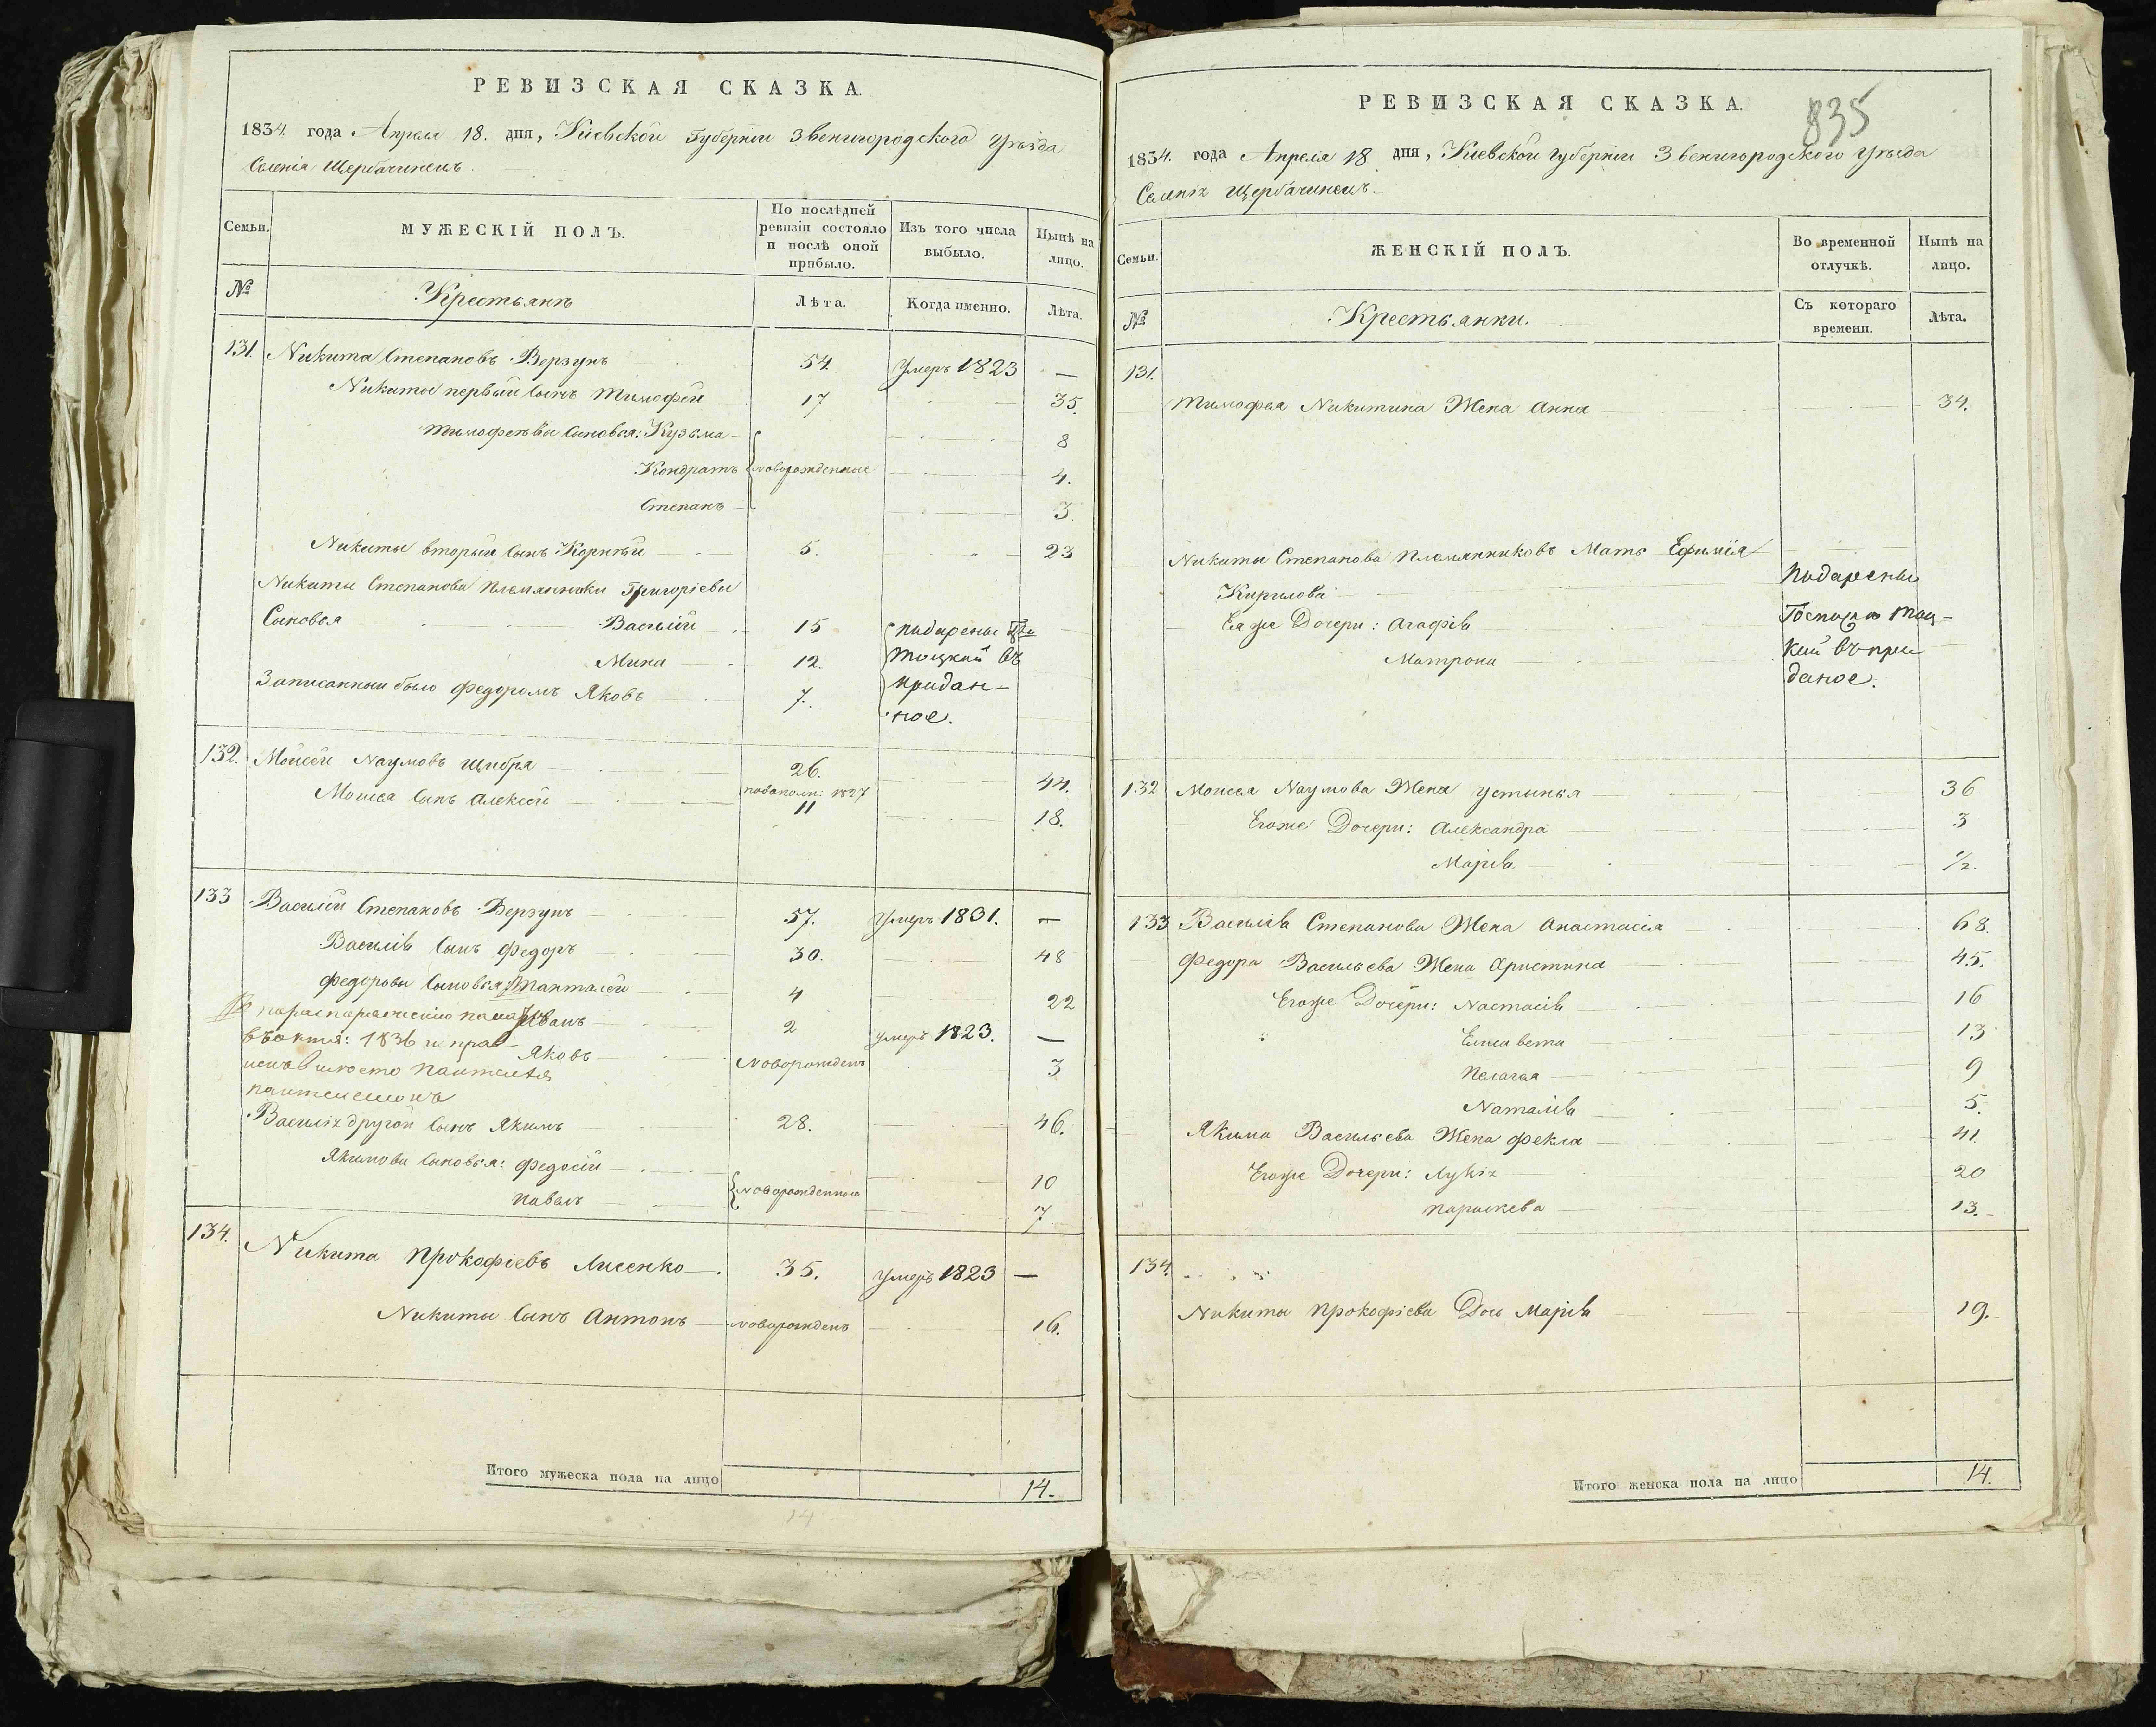 РЕВИЗСКАЯ СКАЗКА.
1834. года Апреля 18. дня, Киевской Губернии Звенигородского Уезда
Селенія Щербачинецъ.
Семьи. МУЖЕСКІЙ ПОЛЪ. По послѣдней ревизіи состояло и послѣ оной прибыло. Изъ того числа выбыло. Нынѣ на лицо.
№ Крестьянъ Лѣта. Когда именно. Лѣта.
131. Никита Степановъ Верзунъ 54. Умеръ 1823 —
Никиты первый сынъ Тимофей 17 35.
Тимофеевы сыновья: Кузьма 8
Кондратъ новорожденные 4.
Степанъ 3.
Никиты вторый сынъ Корнѣй 5. 23
Никиты Степанова племянники Григоріевы
Сыновья Василій 15 подарены
Мина 12. Тоцкой въ
Записанный было Федоромъ Яковъ 7. придан-
ное.
132. Моисей Наумовъ Щибря 26. 44.
Моисея сынъ Алексей 1827 11 18.
133 Василій Степановъ Верзунъ 57. Умеръ 1831. —
Василія сынъ Федоръ 30. 48
Федоровы сыновья: Панталей 4 22
Иванъ 2 умеръ 1823. —
въ 1836
Яковъ новорожденъ 3
вместо Панталея
Василія другой сынъ Якимъ 28. 46.
Якимовы сыновья: Федосій новорожденные 10
Павелъ 7
134. Никита Прокофіевъ Лисенко 35. Умеръ 1823 —
Никиты сынъ Антонъ новорожденъ 16.
Итого мужеска пола на лицо 14.
14
835
РЕВИЗСКАЯ СКАЗКА.
1834. года Апреля 18 дня, Киевской губернии Звенигородского Уезда
Селенія Щербачинецъ.
Семьи. ЖЕНСКІЙ ПОЛЪ. Во временной отлучкѣ. Нынѣ на лицо.
№ Крестьянки. Съ котораго времени. Лѣта.
131.
Тимофея Никитина Жена Анна 34.
Никиты Степанова племянниковъ Мать Ефимія
Кирилова подарены
Ея же Дочери: Агафія Госпоже Тоц-
Матрона кой въ при
даное.
132 Моисея Наумова Жена Устинья 36
Егоже Дочери: Александра 3
Марія 1/2.
133 Василія Степанова Жена Анастасія 68.
Федора Васильева Жена Христина 45.
Егоже Дочери: Настасія 16
Елисавета 13
Пелагея 9
Наталія 5.
Якима Васильева Жена Фекла 41.
Егоже Дочери: Лукія 20
Параскева 13.
134.
Никиты Прокофіева Дочь Марія 19.
Итого женска пола на лицо 14.